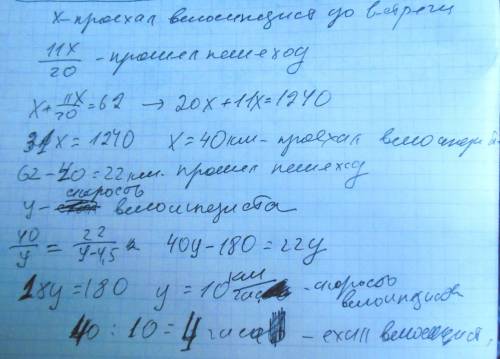 x - проехал велосипедист до встречи
11x/20 - прошел пешеход
x + 11x/20 = 62 → 20x + 11x = 1240
31x = 1240 x = 40 км - проехал велосипеди
62 - 40 = 22 км. прошел пешеход
y - скорость велосипедиста
40/y = 22/y-4,5 40y - 180 = 22y
18y = 180 y = 10 км/час - скорость велосипедиста
40 : 10 = 4 часа - ехал велосипедист,